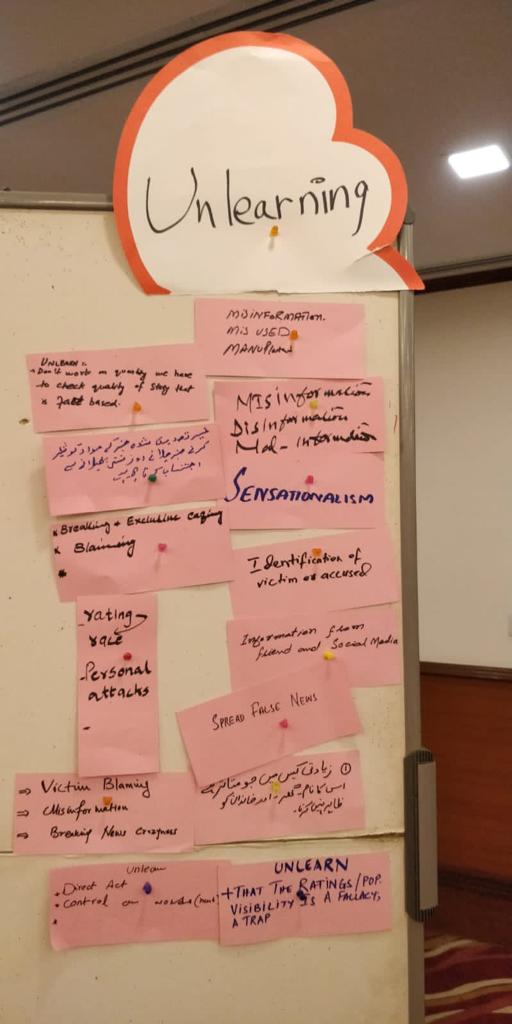 Unlearning
MISINFORMATION.
MIS USED
MANUPlated
UNLEARN:
Don't work on quantity we have
to check quality of story that
is fact based.
MISinformation
Disinformation
Mal-information
SENSATIONALISM
Breaking + Exclusive
Blaiming
Identification of
victim or accused
rating
race
-Personal
attacks
-
Information from
friend and Social Media
SPREAD FALSE NEWS
⇒ Victim Blaming
⇒ Misinformation
⇒ Breaking News crazyness
① زیادتی کیس میں جو متاثر ہے
اس کا نام - گھر - اور خاندان کو
ظاہر نہیں کرنا۔
Unlearn
• Direct Act
• Control on words
UNLEARN
+ THAT THE RATINGS/POP.
VISIBILITY IS A FALLACY,
A TRAP